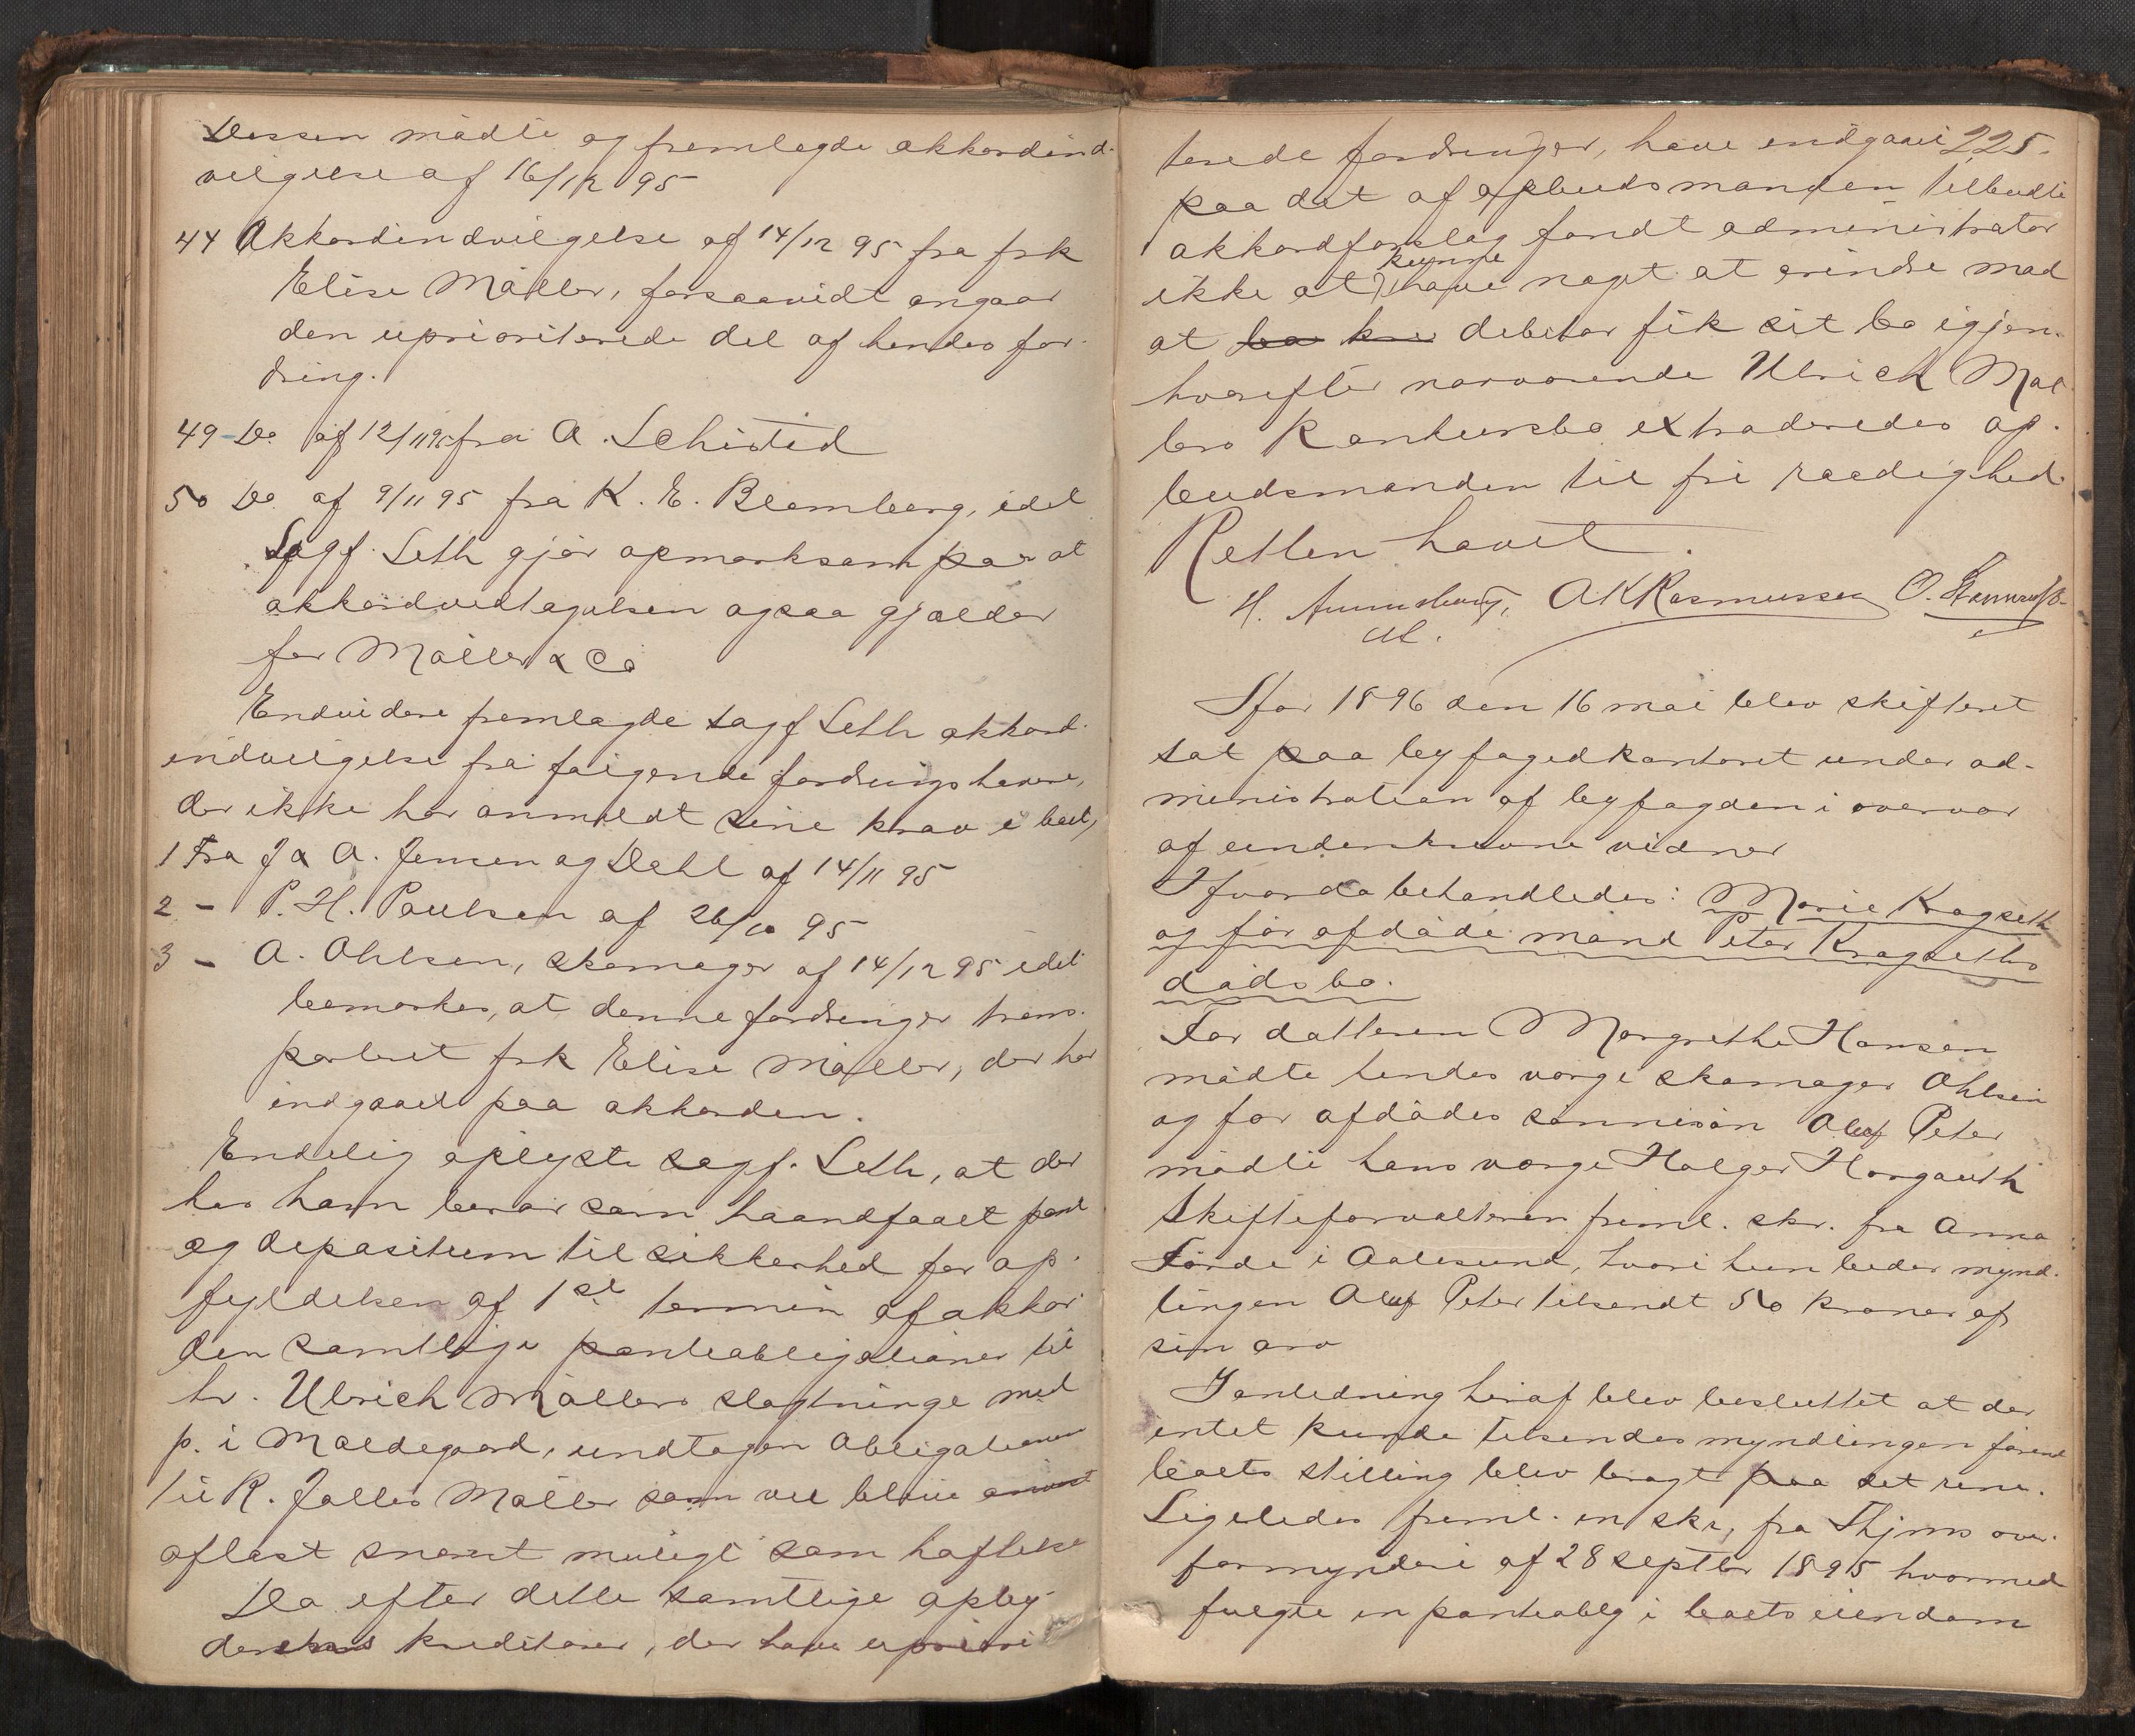 Dessen mødte og fremlagde akkordind-
vilgelse af 16/12 95
44 Akkordindvilgelse af 14/12 95 fra frk
Elise Møller, forsaavidt angaar
den uprioriterede del af hendes for-
dring.
49 Do af 12/11 95 fra A. Schisted
50 Do. af 9/11 95 fra K. E. Blomberg, idet
Sagf. Seth gjør opmærksom paa at
akkordvedtagelsen ogsaa gjælder
for Møller & Co
Endvidere fremlagde sagf Seth akkord-
indvilgelse fra følgende fordringshavere,
der ikke har anmeldt sine krav i boet,
1 Fra J & A. Jensen og Dahl af 14/11 95
2 - P. H. Poulsen af 26/10 95
3 - A. Ohlsen, skomager af 14/12 95 idet
bemærkes, at denne fordringer trans-
porteret frk Elise Møller, der har
indgaaet paa akkorden.
Endelig oplyste sagf. Seth, at der
hos ham beror som haandfaaet pant
og depositum til sikkerhed for op-
fyldelsen af 1ste termin af akkor
den samtlige panteobligationer til
hr. Ulrich Møllers slægtninge med
p. i Møldegaard, undtagen Obligationen
til R. Jalles Møller som vil blive
aflæst snarest muligt som hæftelse
Da efter dette samtlige opby-
derens kreditorer, der have upriori
225.
terede fordringer, have indgaaet
paa det af opbudsmanden tilbudte
akkordforslag fandt administrator
kunne
ikke at have noget at erindre mod
at bo debitor fik sit bo igjen.
hvorefter nærværende Ulrich Møl-
lers Konkursbo extraderedes op-
budsmanden til fri raadighed.
Retten hævet.
H. AKRasmussen O.
Aar 1896 den 16 mai blev skifteret
sat paa byfogedkontoret under ad-
ministration af byfogden i overvær
af underskrevne vidner
Hvorda behandledes: Marie Kragseth
og før afdøde mand Peter Kragseths
dødsbo.
For datteren Margrethe Hansen
mødte hendes værge skomager Ohlsen
og for afdødes sønnesøn Oluf Peter
mødte hans værge Holger Horgauth
Skifteforvalteren freml. skr. fra Anna
Førde i Aalesund, hvori hun beder mynd-
lingen Oluf Peter tilsendt 50 kroner af
sin arv
I anledning heraf blev besluttet at der
intet kunde tilsendes myndlingen førend
boets stilling blev bragt paa det rene.
Ligeledes freml. en skr, fra Thjms over-
formynderi af 28 septbr 1895 hvormed
fulgte en panteoblg i boets eiendom